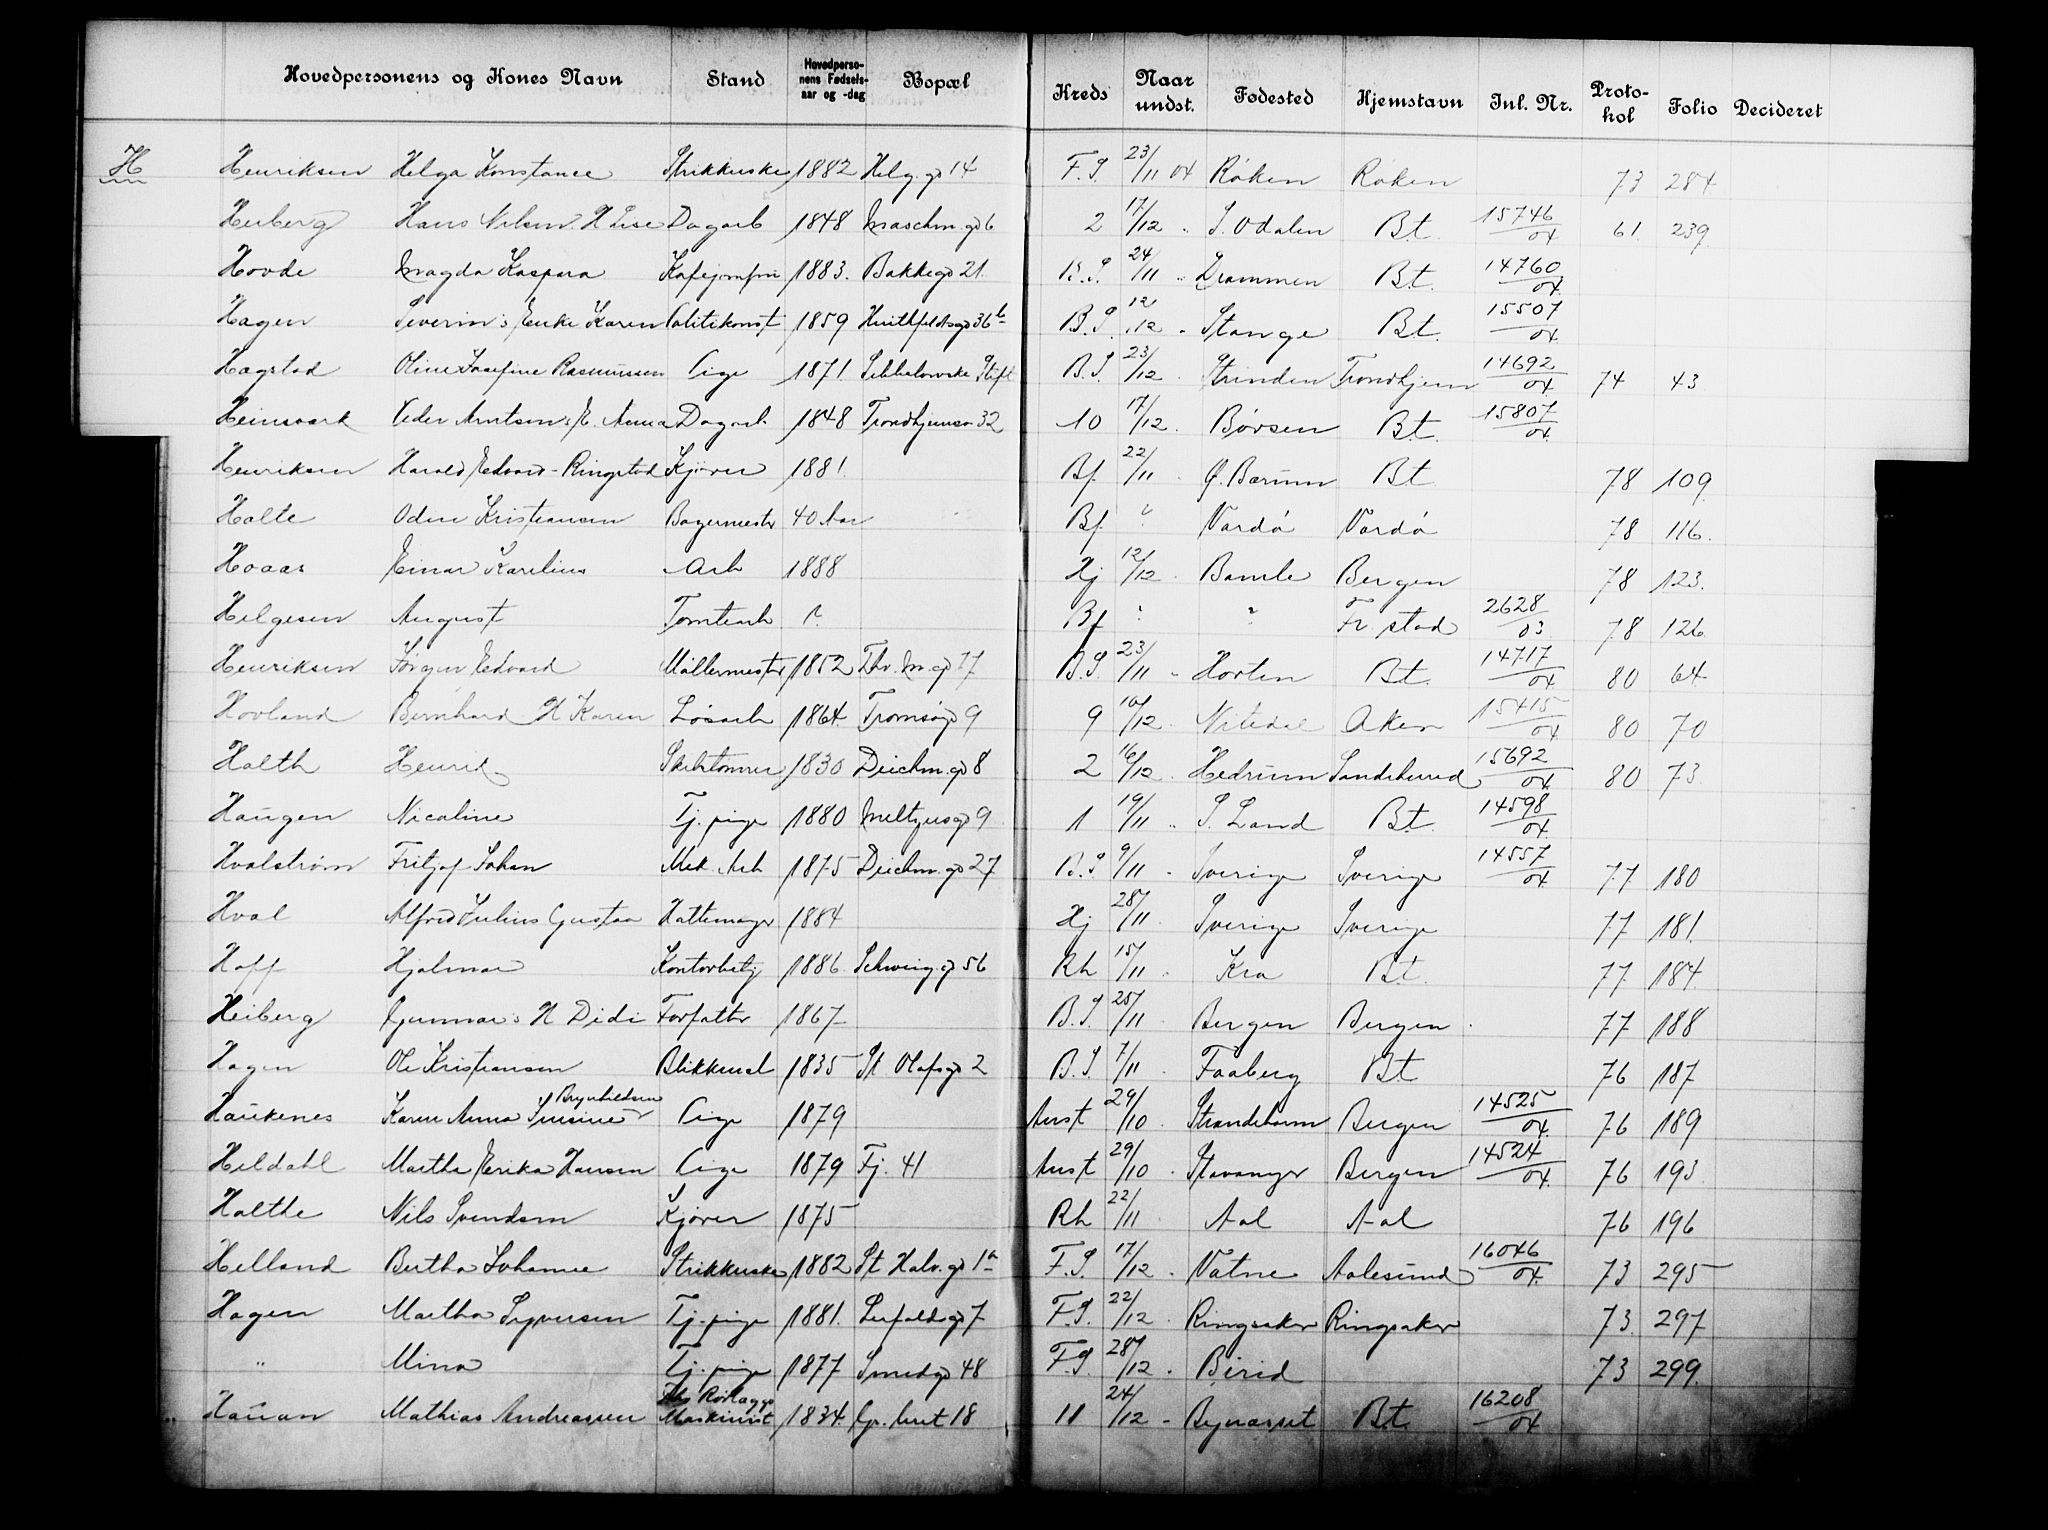 Hovedpersonens og Kones Navn Stand Hovedpersonens Fødselsaar og -dag Bopæl Kreds Naar undst. Fødested Hjemstavn Inl. Nr. Protokol Folio Decideret
H Henriksen Helga Konstance Strikkerske 1882 Helg. gd 14 F.S. 23/11 04 Røken Røken 73 284
Heiberg Hans Nilsen H Lise Dagarb 1848 Maschm. gd 6 2 17/12 " S. Odalen Bt. 15746/04 61. 239.
Hovde Magda Kaspara Kafejomfru 1883. Bakkegd 21. B.S. 24/11 " Drammen Bt. 14760/04
Hagen Severin's Enke Karen Politikonst 1859 Huitfeldtsgd 36 b B.S. 12/12 " Stange Bt. 15507/04
Hagstad Oline Josefine Rasmussen Pige 1871. Sibbelovske Stift B.S. 23/12 " Strinden Trondhjem 14692/04 74 43.
Heinsvark Peder Arntsen's E. Anna Dagarb. 1848 Trondhjemsv 32 10 17/12 . Børsen Bt. 15807/04
Henriksen Harald Edvard - Ringstad Kjører 1881. Bf. 22/11 . Ø. Bærum Bt. 78 109.
Holte Odin Kristiansen Bagermester 40 Aar Bf ? Vardø Vardø 78 116.
Hovas Einar Karelius Arb 1888 Hj 12/12 . Bamle Bergen 78 123.
Helgesen August Tomtearb ? Bf ? ? Fr. stad 2628/03 78 126.
Henriksen Jørgen Edvard Møllermester 1852 Thv. M. gd 17 B.S. 23/11 " Horten Bt. 14717/04 80 64.
Hovland Bernhard H Karen Løsarb 1864. Tromsøgd 9 9 10/12 . Nitedal Aker 15415/04 80 70
Holth Henrik Skibstømrer 1830 Deichm. gd 8 2 16/12 . Hedrum Sandeherred 15692/04 80 73.
Haugen Nicoline Tj. pige 1880 Meltzersgd 9 1 19/11 " S. Land Bt. 14598/04
Hvalstrøm Fritjof Johan Mek. Arb 1875 Deichm. gd 27 B.S 9/11 " Sverige Sverige 14557/04 77 180
Hval Alfred Julius Gustav Hattemager 1884 Hj 28/11 . Sverige Sverige 77 181.
Hoff Hjalmar Kontorbetj 1886. Schweig. gd 56 Rh 15/11 . Kra Bt. 77 184.
Heiberg Gunnar's H Didi Forfatter 1867 B.S. 25/11 Bergen Bergen . 77 188
Hagen Ole Kristiansen Blikkensl 1835 St. Olafsgd 2 B.S. 7/11 . Faaberg Bt 76 187
Brynhildsen
Haukenes Karen Anna Pige 1879 Anst 29/10 . Strandebarm Bergen 14525/04 76 189
Heldahl Martha Erika Hansen Pige 1879 Fj. 41 Anst 29/10 . Stavanger Bergen 14524/04 76 193
Holthe Nils Svendsen Kjører 1875 Rh 22/11 . Aal Aal 76 196
Helland Bertha Johanne Strikkerske 1882 St Halv. gd 1 a F.S. 17/12 . Vatne Aalesund 16046/04 73 295
Hagen Martha Syversen Tj. pige 1881. Lerfaldsgd 7 F.S. 22/12 . Ringsaker Ringsaker 73. 297
" Mina Tj. pige 1877 Smedgd 48 F.S 28/12 . Birid 73 299.
Hauan Mathias Andreassen Maskinist 1834. Gr. Aret 18 11 24/12 - Bynæsset Bt. 16208/04